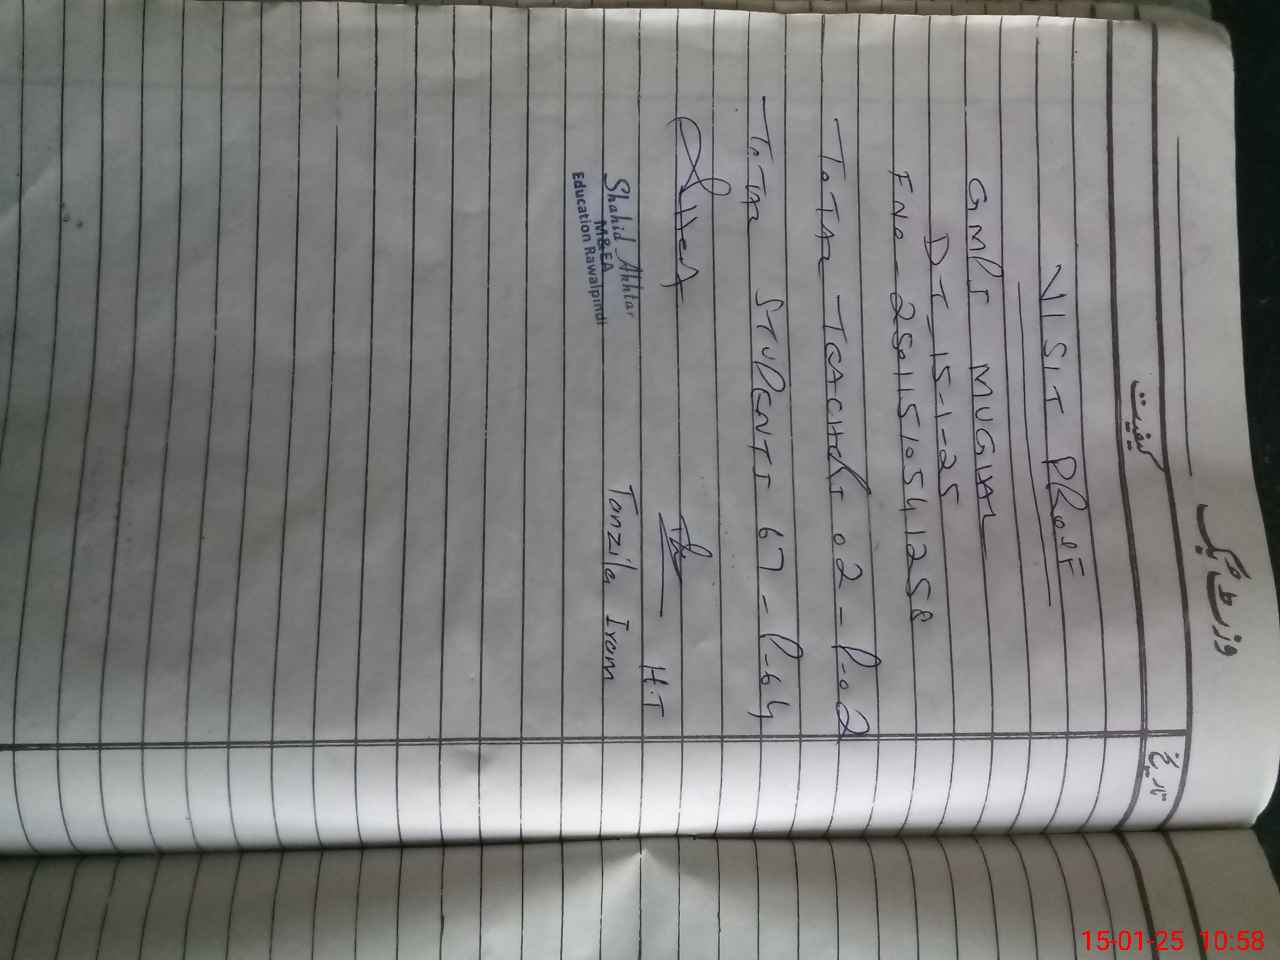 وزٹ بک
کیفیت
تاریخ
VISIT PROOF
GMPS MUGHAL
DT-15-1-25
FNO-2501151054 1258
TOTAL TEACHERS 02-P-02
TOTAL STUDENTS 67-P-64
H.T
Shahid Akhtar
M&EA
Education Rawalpindi
Tanzila Iram
15-01-25 10:58